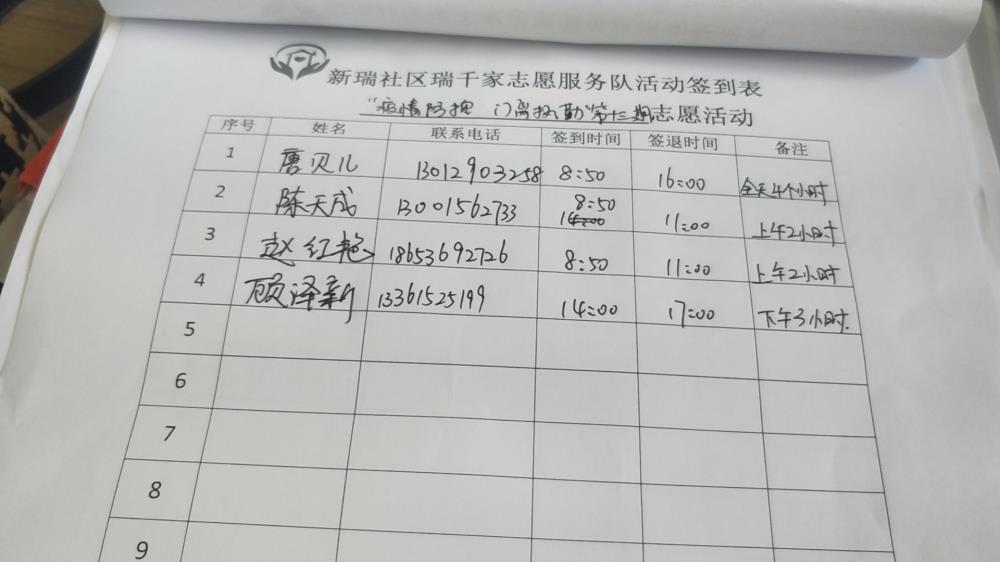 新瑞社区瑞千家志愿服务队活动签到表
"疫情防控 门岗执勤"第十二期志愿活动
序号 姓名 联系电话 签到时间 签退时间 备注
1 唐贝儿 13012903258 8:50 16:00 全天4个小时
2 陈天成 13001562733 8:50 14:00 11:00 上午2小时
3 赵红艳 18653692726 8:50 11:00 上午2小时
4 顾泽新 13361525199 14:00 17:00 下午3小时.
5
6
7
8
9